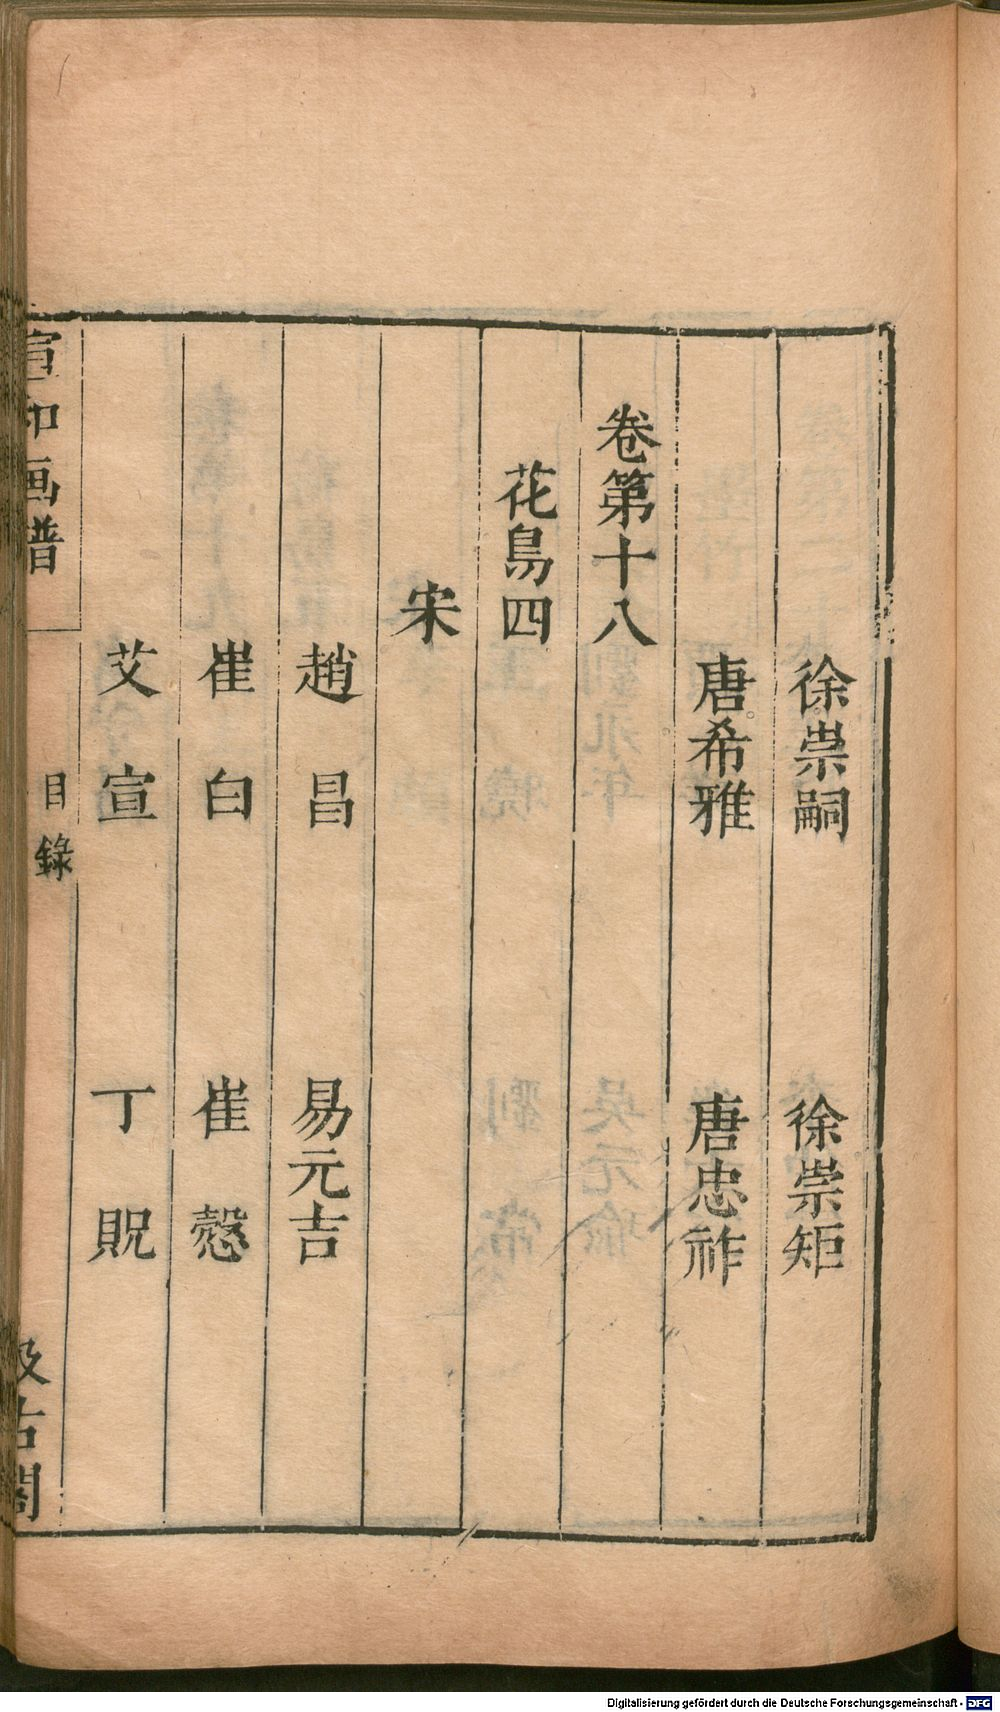 徐崇嗣　徐崇矩
唐希雅　唐忠祚
卷第十八
花鳥四
宋
趙昌　易元吉
崔白　崔慤
艾宣　丁貺
宣和画譜　目錄　汲古閣
Digitalisierung gefördert durch die Deutsche Forschungsgemeinschaft - DFG